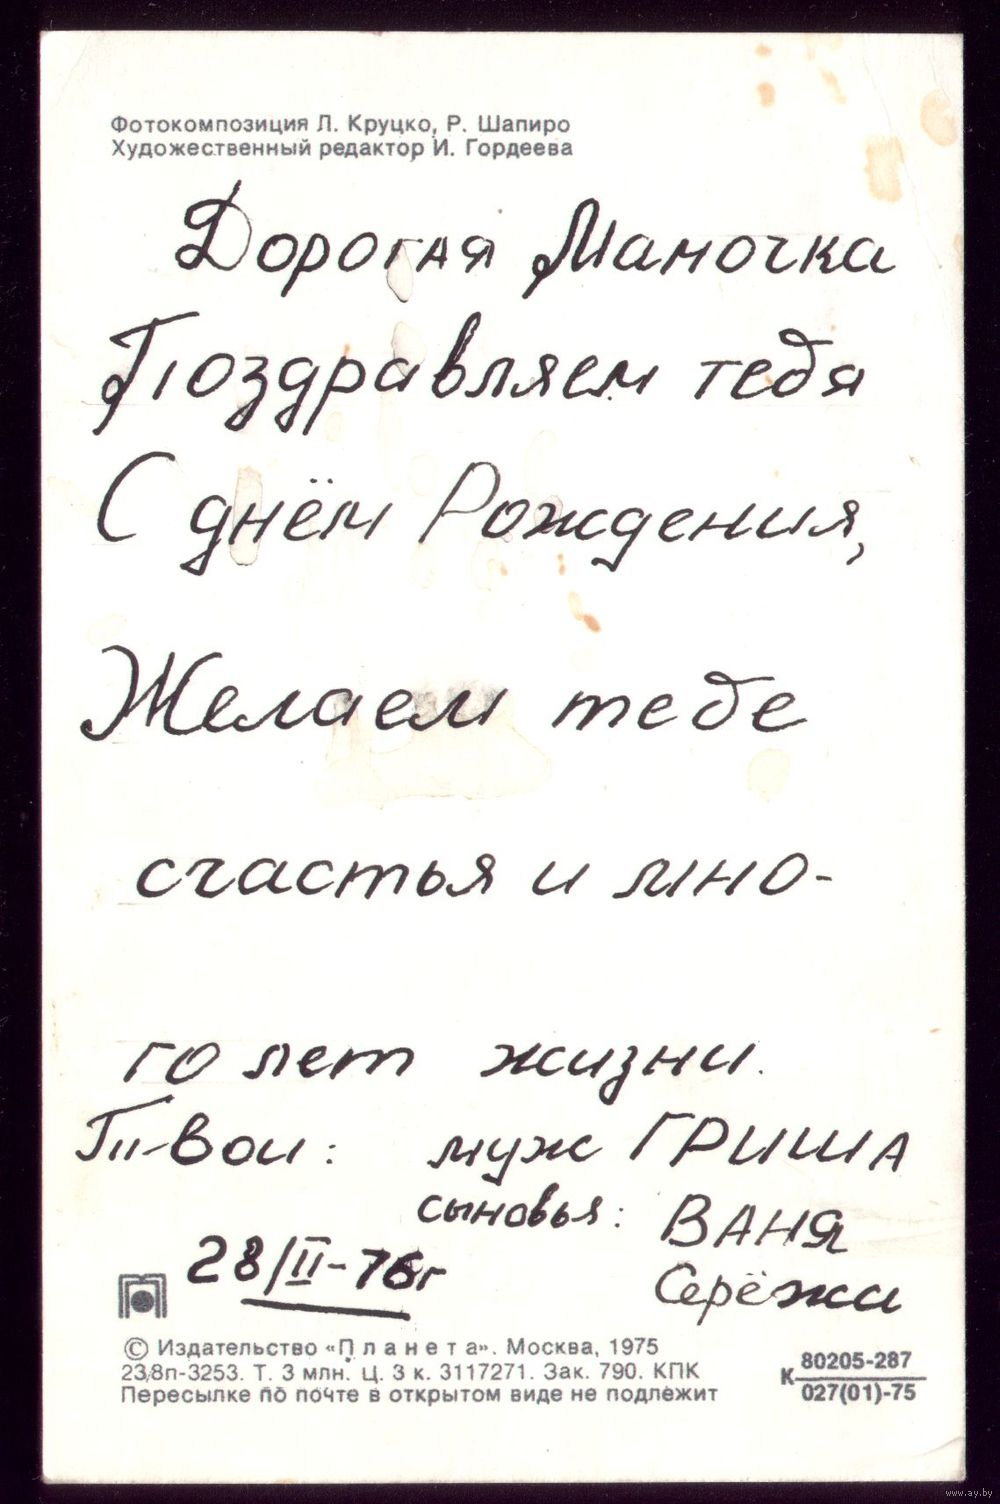 Фотокомпозиция Л. Круцко, Р. Шапиро
Художественный редактор И. Гордеева
Дорогая Мамочка
Поздравляем тебя
С днём Рождения,
Желаем тебе
счастья и мно-
го лет жизни.
Твои: муж ГРИША
сыновья: ВАНЯ
Серёжа
28/II-76г
© Издательство «Планета». Москва, 1975
23/8п-3253. Т. 3 млн. Ц. 3 к. 3117271. Зак. 790. КПК
Пересылке по почте в открытом виде не подлежит
К 80205-287
027(01)-75
www.ay.by